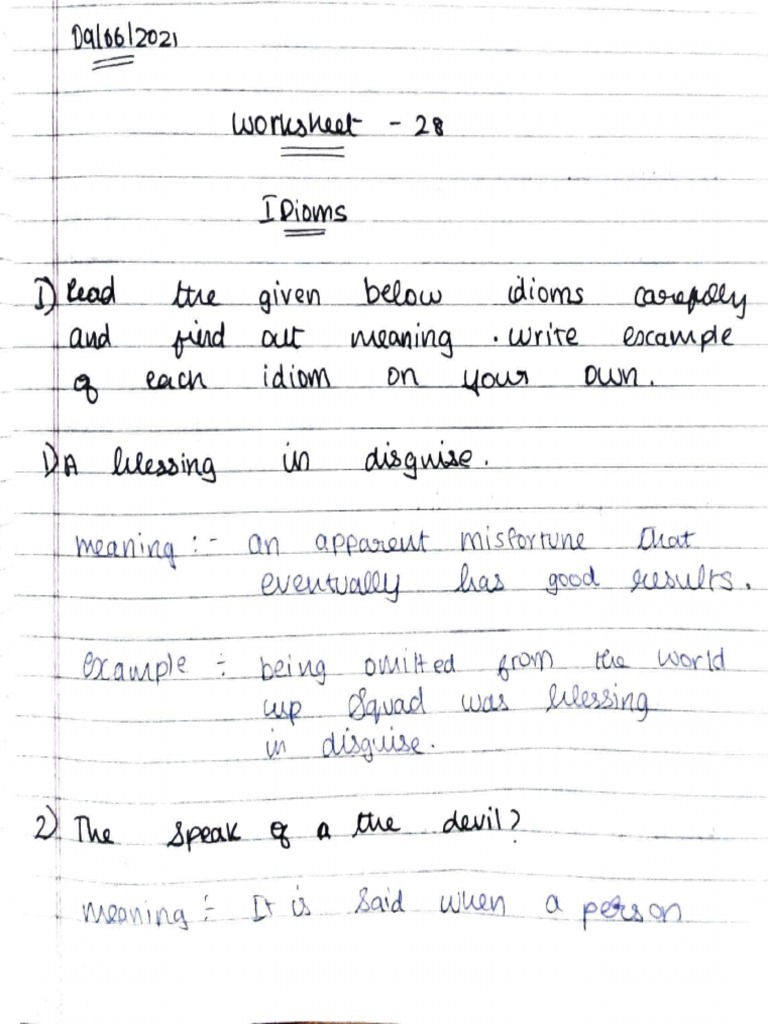 09/06/2021
Worksheet - 28
IDioms
I) Read the given below idioms carefully
and find out meaning . write example
of each idiom on your own.
1) A blessing in disguise.
meaning :- an apparent misfortune that
eventually has good results.
example :- being omitted from the world
cup squad was blessing
in disguise.
2) The speak of a the devil?
meaning :- It is said when a person